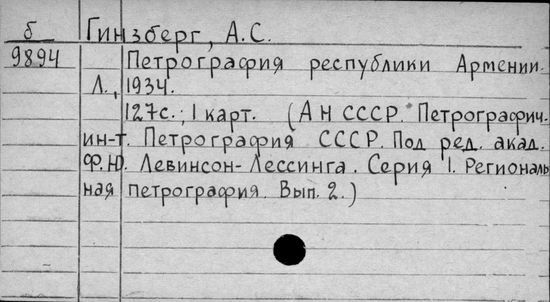 б Гинзберг, А.С.
9894 Петрография республики Армении.
Л., 1934.
127с.; 1 карт. (АН СССР. Петрографич.
ин-т. Петрография СССР. Под ред. акад.
Ф.Ю. Левинсон-Лессинга. Серия 1. Региональ
ная петрография. Вып. 2.)